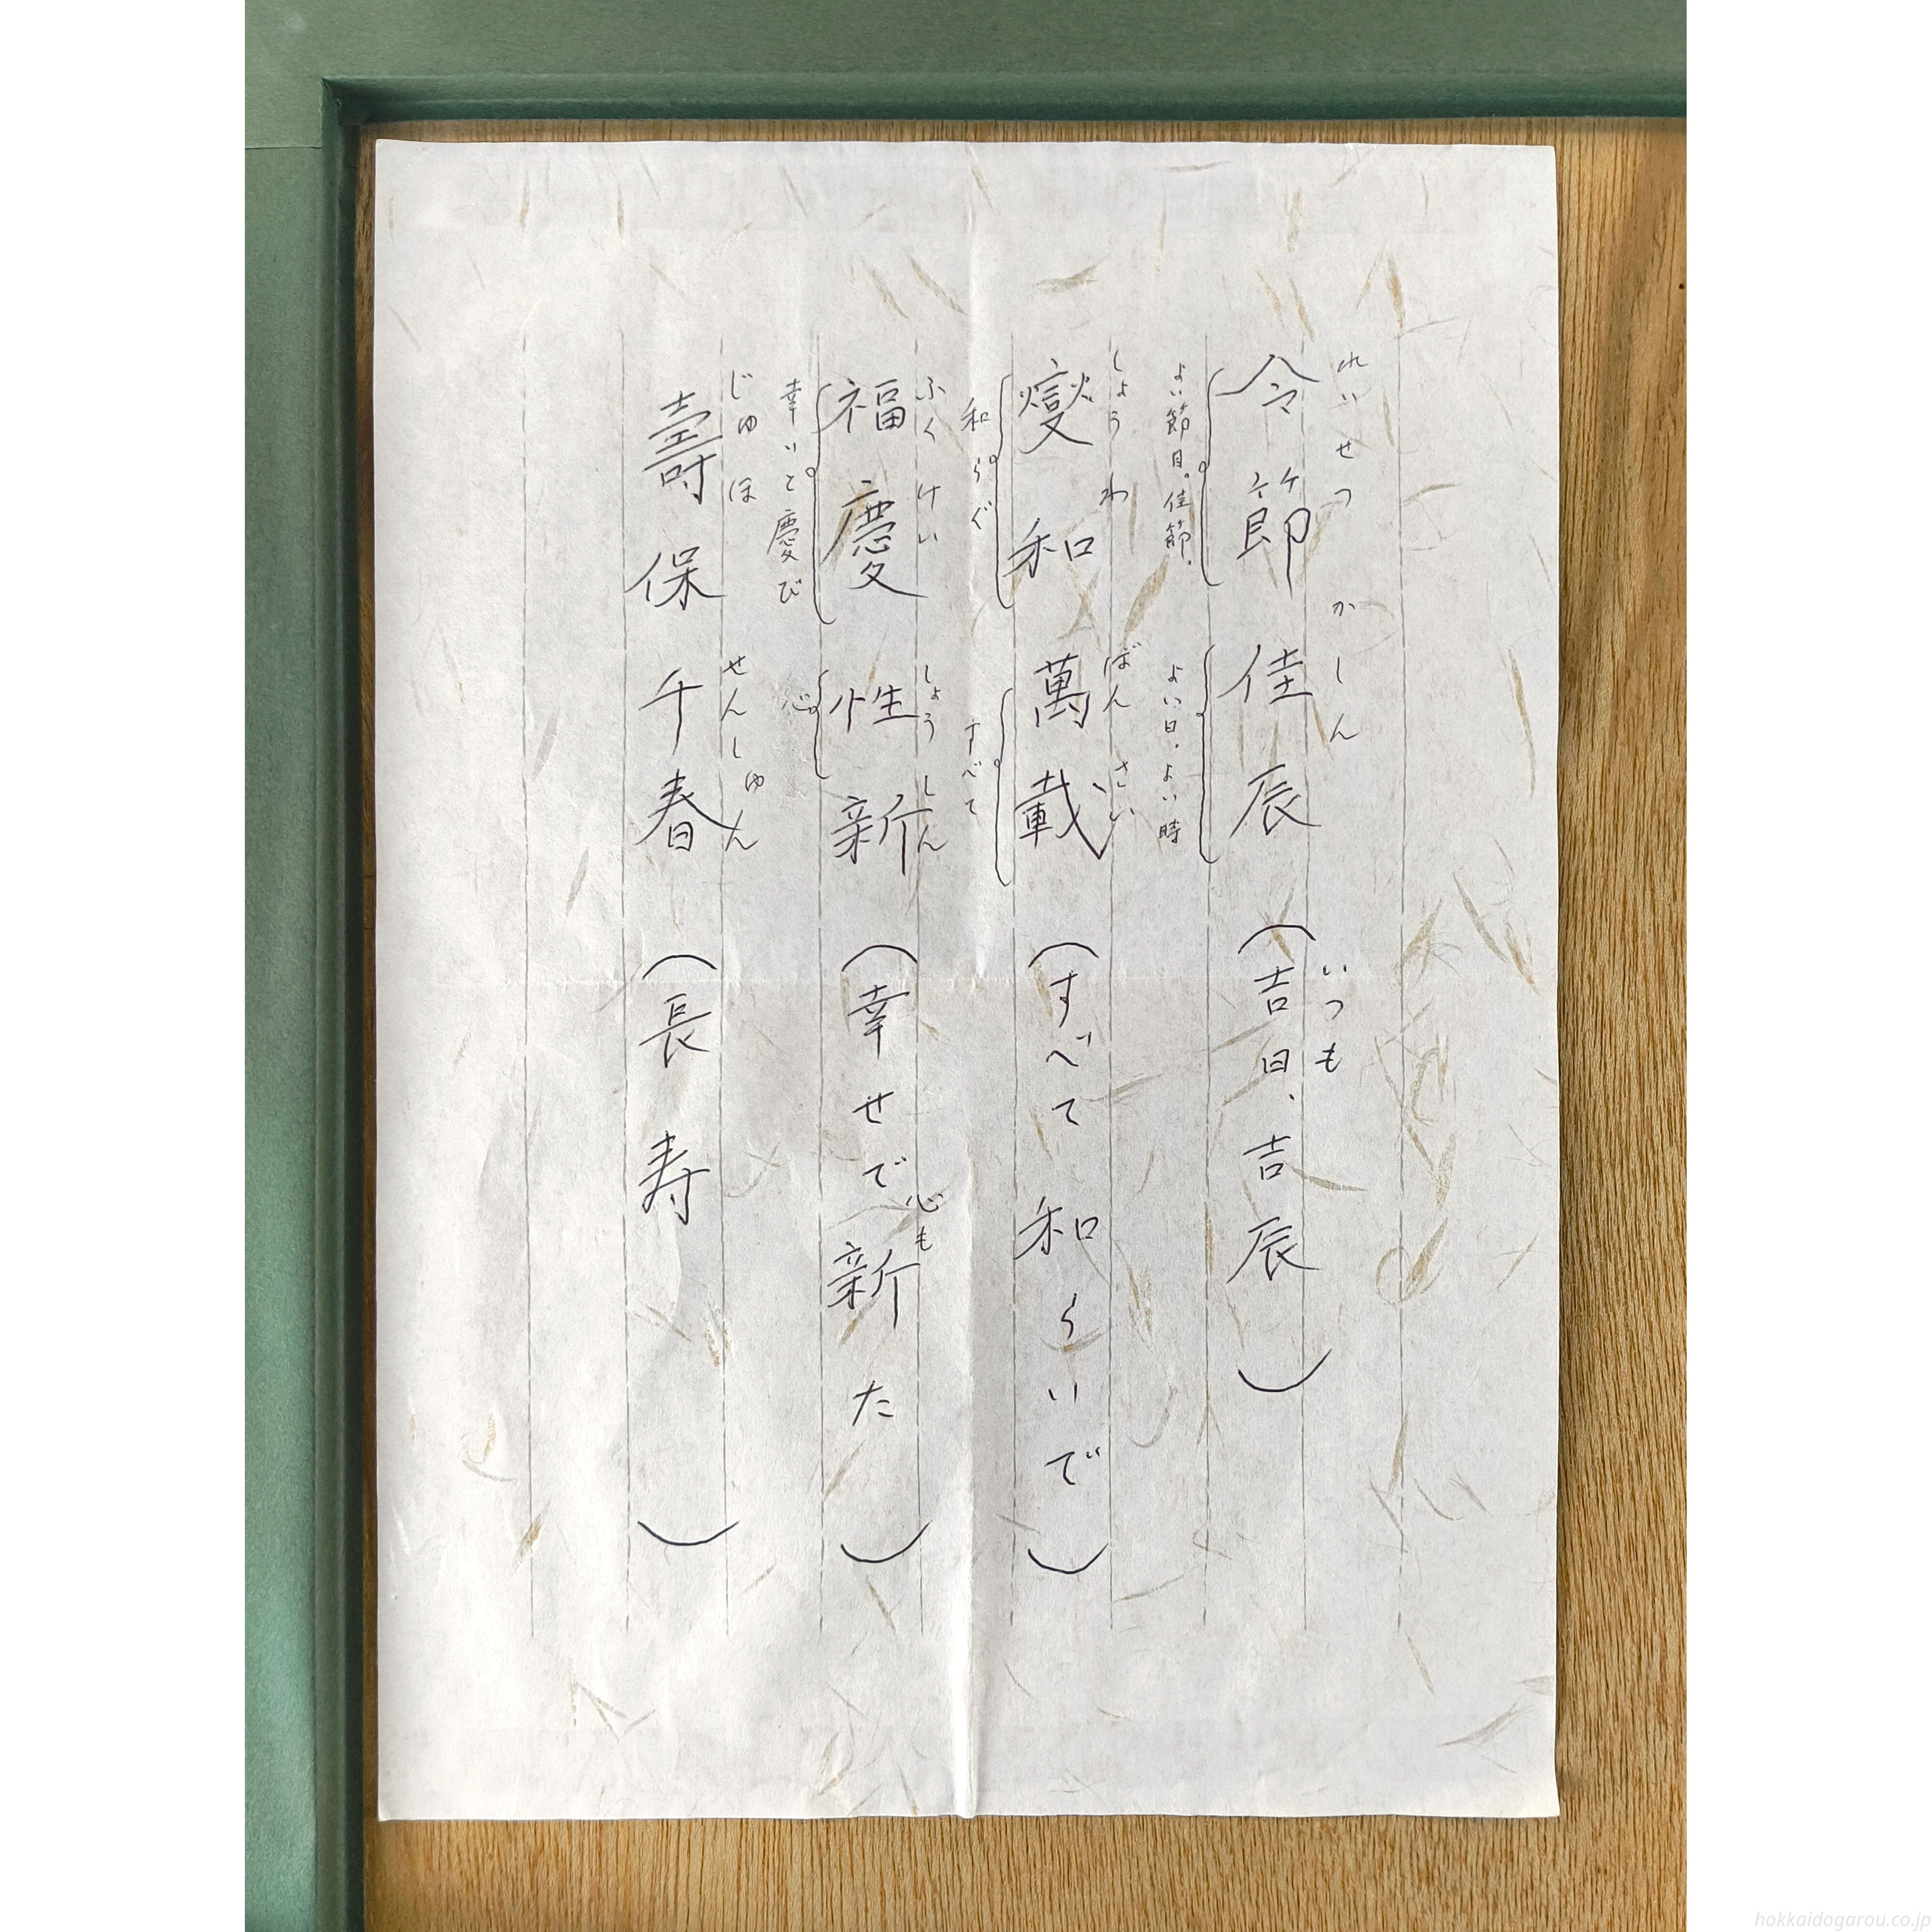 れいせつ かしん いつも
令節 佳辰 (吉日、吉辰)
よい節目。佳節、 よい日、よい時
しょうわ ばんざい
燮和 萬載 (すべて和らいで)
和らぐ すべて
ふくけい しょうしん 心も
福慶 性新 (幸せで新た)
幸いと慶び 心
じゅほ せんしゅん
壽保 千春 (長寿)
hokkaidogarou.co.jp